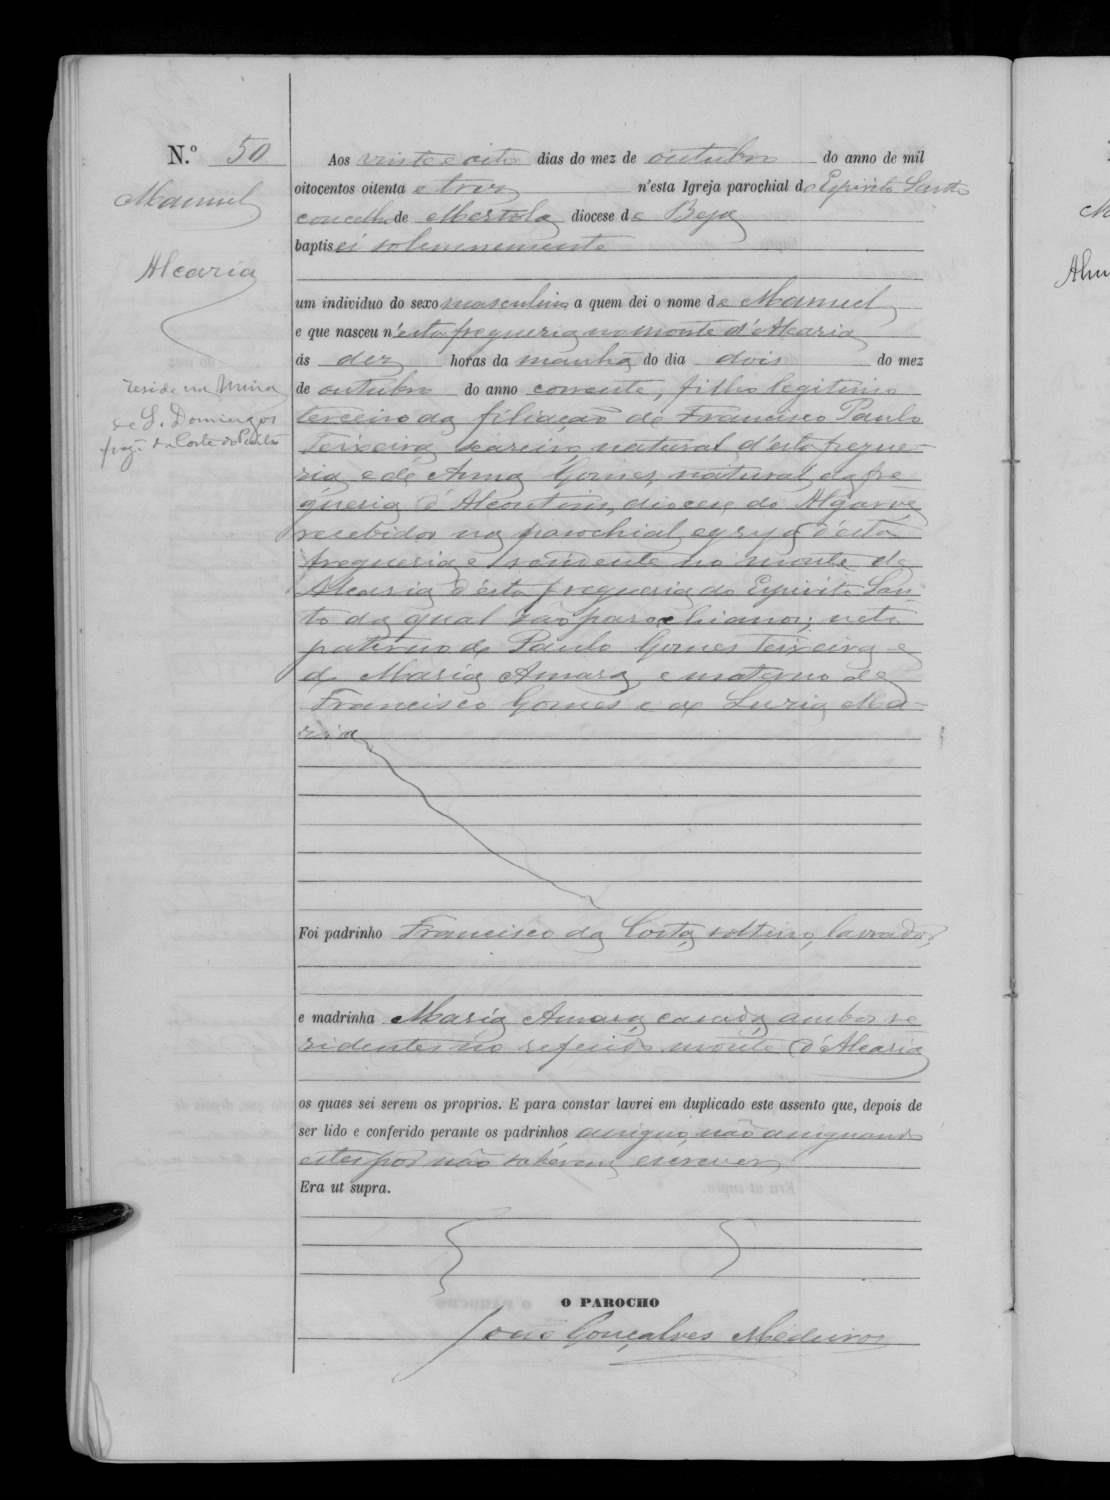 N.º 50
Manuel
Alcaria
reside na Mina
de S. Domingos
freg.ª da Corte do Pinto
Aos vinte e oito dias do mez de outubro do anno de mil
oitocentos oitenta e trez n'esta Igreja parochial do Espirito Santo
concelho de Mertola diocese de Beja
baptisei solemnemente
um individuo do sexo masculino a quem dei o nome de Manuel
e que nasceu n'esta freguesia no monte d'Alcaria
ás dez horas da manhã do dia dois do mez
de outubro do anno corrente, filho legitimo
terceiro da filiação de Francisco Paulo
Teixeira, seareiro, natural d'esta fregue-
sia e de Anna Gomes, natural da fre-
guesia d'Alcoutim, diocese do Algarve
recebidos na parochial egreja d'esta
freguesia, e residentes no monte de
Alcaria d'esta freguesia do Espirito San-
to da qual são parochianos; neto
paterno de Paulo Gomes Teixeira e
de Maria Amara, e materno de
Francisco Gomes e de Luzia Ma-
ria
Foi padrinho Francisco da Costa, solteiro, lavrador,
e madrinha Maria Amara, casada, ambos re-
sidentes no referido monte d'Alcaria
os quaes sei serem os proprios. E para constar lavrei em duplicado este assento que, depois de
ser lido e conferido perante os padrinhos, assigno, não assignando
estes por não saberem escrever
Era ut supra.
O PAROCHO
João Gonçalves Medeiros